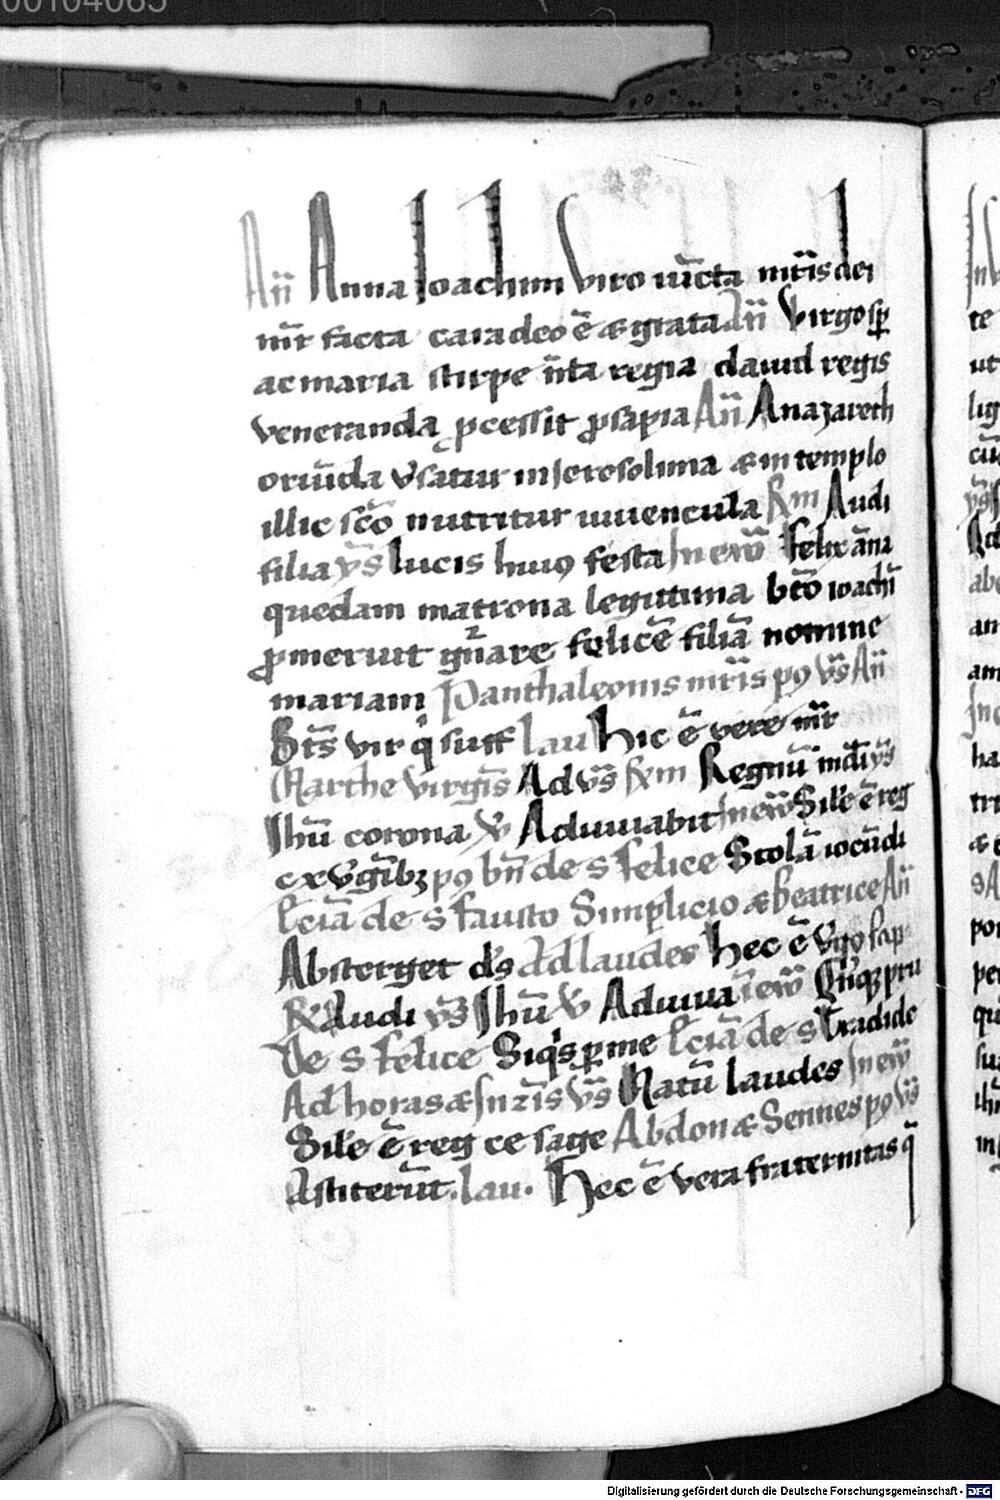 00104065
Añ Anna Joachim viro iūcta mr̄is dei
mr̄ facta cara deo ē & grata Añ Virgo sꝑ
ac maria stirpe nāta regia dauid regis
veneranda ꝓcessit ꝓsapia Añ A nazareth
oriūda v̄satur in Jerosolima & in templo
illic sc̄o nutritur iuuencula Rm Audi
filia ys̄ lucis huiꝯ festa In ew̄ Felix āna
quedam matrona legittima bt̄o ioachī
ꝓmeruit gn̄are felicē filiā nomine
mariam Panthaleonis mr̄is pꝯ vs̄ Añ
Bt̄s vir q̇ suff Lau Hic ē vere mr̄
Marthe virgīs Ad vs̄ rm Regnū mūdi ys̄
Jhū corona W Adiuuabit In ew̄ Sil'e ē reg
ce xv̄gībꝫ pꝯ bn̄ de s Felice Stolā iocūdi
Lc̄iā de s Fausto Simplicio & Beatrice Añ
Absterget d's Ad laudes Hec ē v̄go sap
R Audi vs̄ Jhū W Adiuua ī ew̄ Quīqꝫ pru
De s Felice Siq's ꝑ me Lc̄iā de s Tradide
Ad horas & In zīs vs̄ Natū laudes In ew̄
Sil'e ē reg ce sage Abdon & Sennes pꝯ vs̄
Astiterūt. Lau. Hec ē vera fraternitas q̄
In
te
ut
lig
cū
abe
am
am
ha
tri
por
per
qu
Digitalisierung gefördert durch die Deutsche Forschungsgemeinschaft - DFG